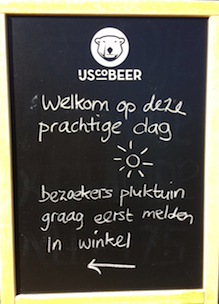 IJSCOBEER
Welkom op deze
prachtige dag
bezoekers pluktuin
graag eerst melden
In winkel